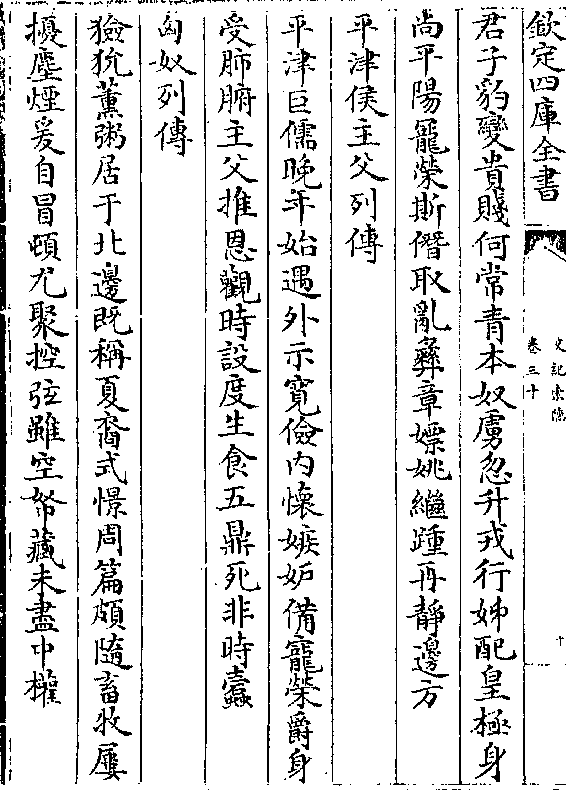 欽定四庫全書
史記索隱
卷三十
十
君子豹變貴賤何常青本奴虜忽升戎行姊配皇極身
尚平陽寵榮斯僭取亂彝章嫖姚繼踵再靜邊方
平津侯主父列傳
平津巨儒晚年始遇外示寛儉内懷嫉妒備寵榮爵身
受肺腑主父推恩觀時設度生食五鼎死非時蠹
匈奴列傳
獫狁薫粥居于北邊既稱夏裔式憬周篇頗隨畜牧屢
擾塵煙爰自冒頓尤聚控弦雖空帑藏未盡中權